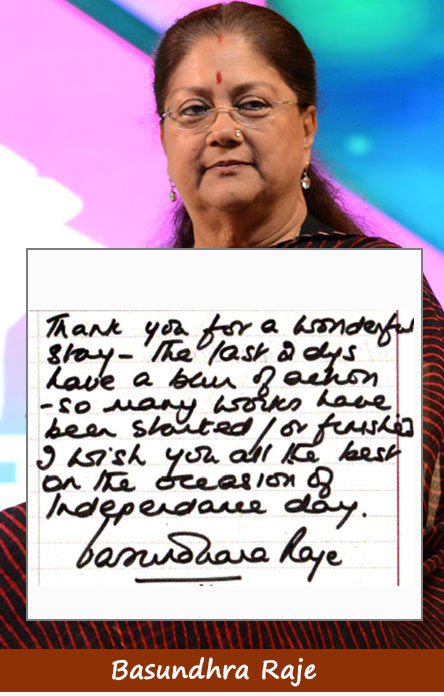 Thank you for a wonderful
stay – The last 2 dys
have a blur of action
- so many works have
been started / or finished
I wish you all the best
on the occasion of
Independance day.
basundhara Raje
Basundhra Raje